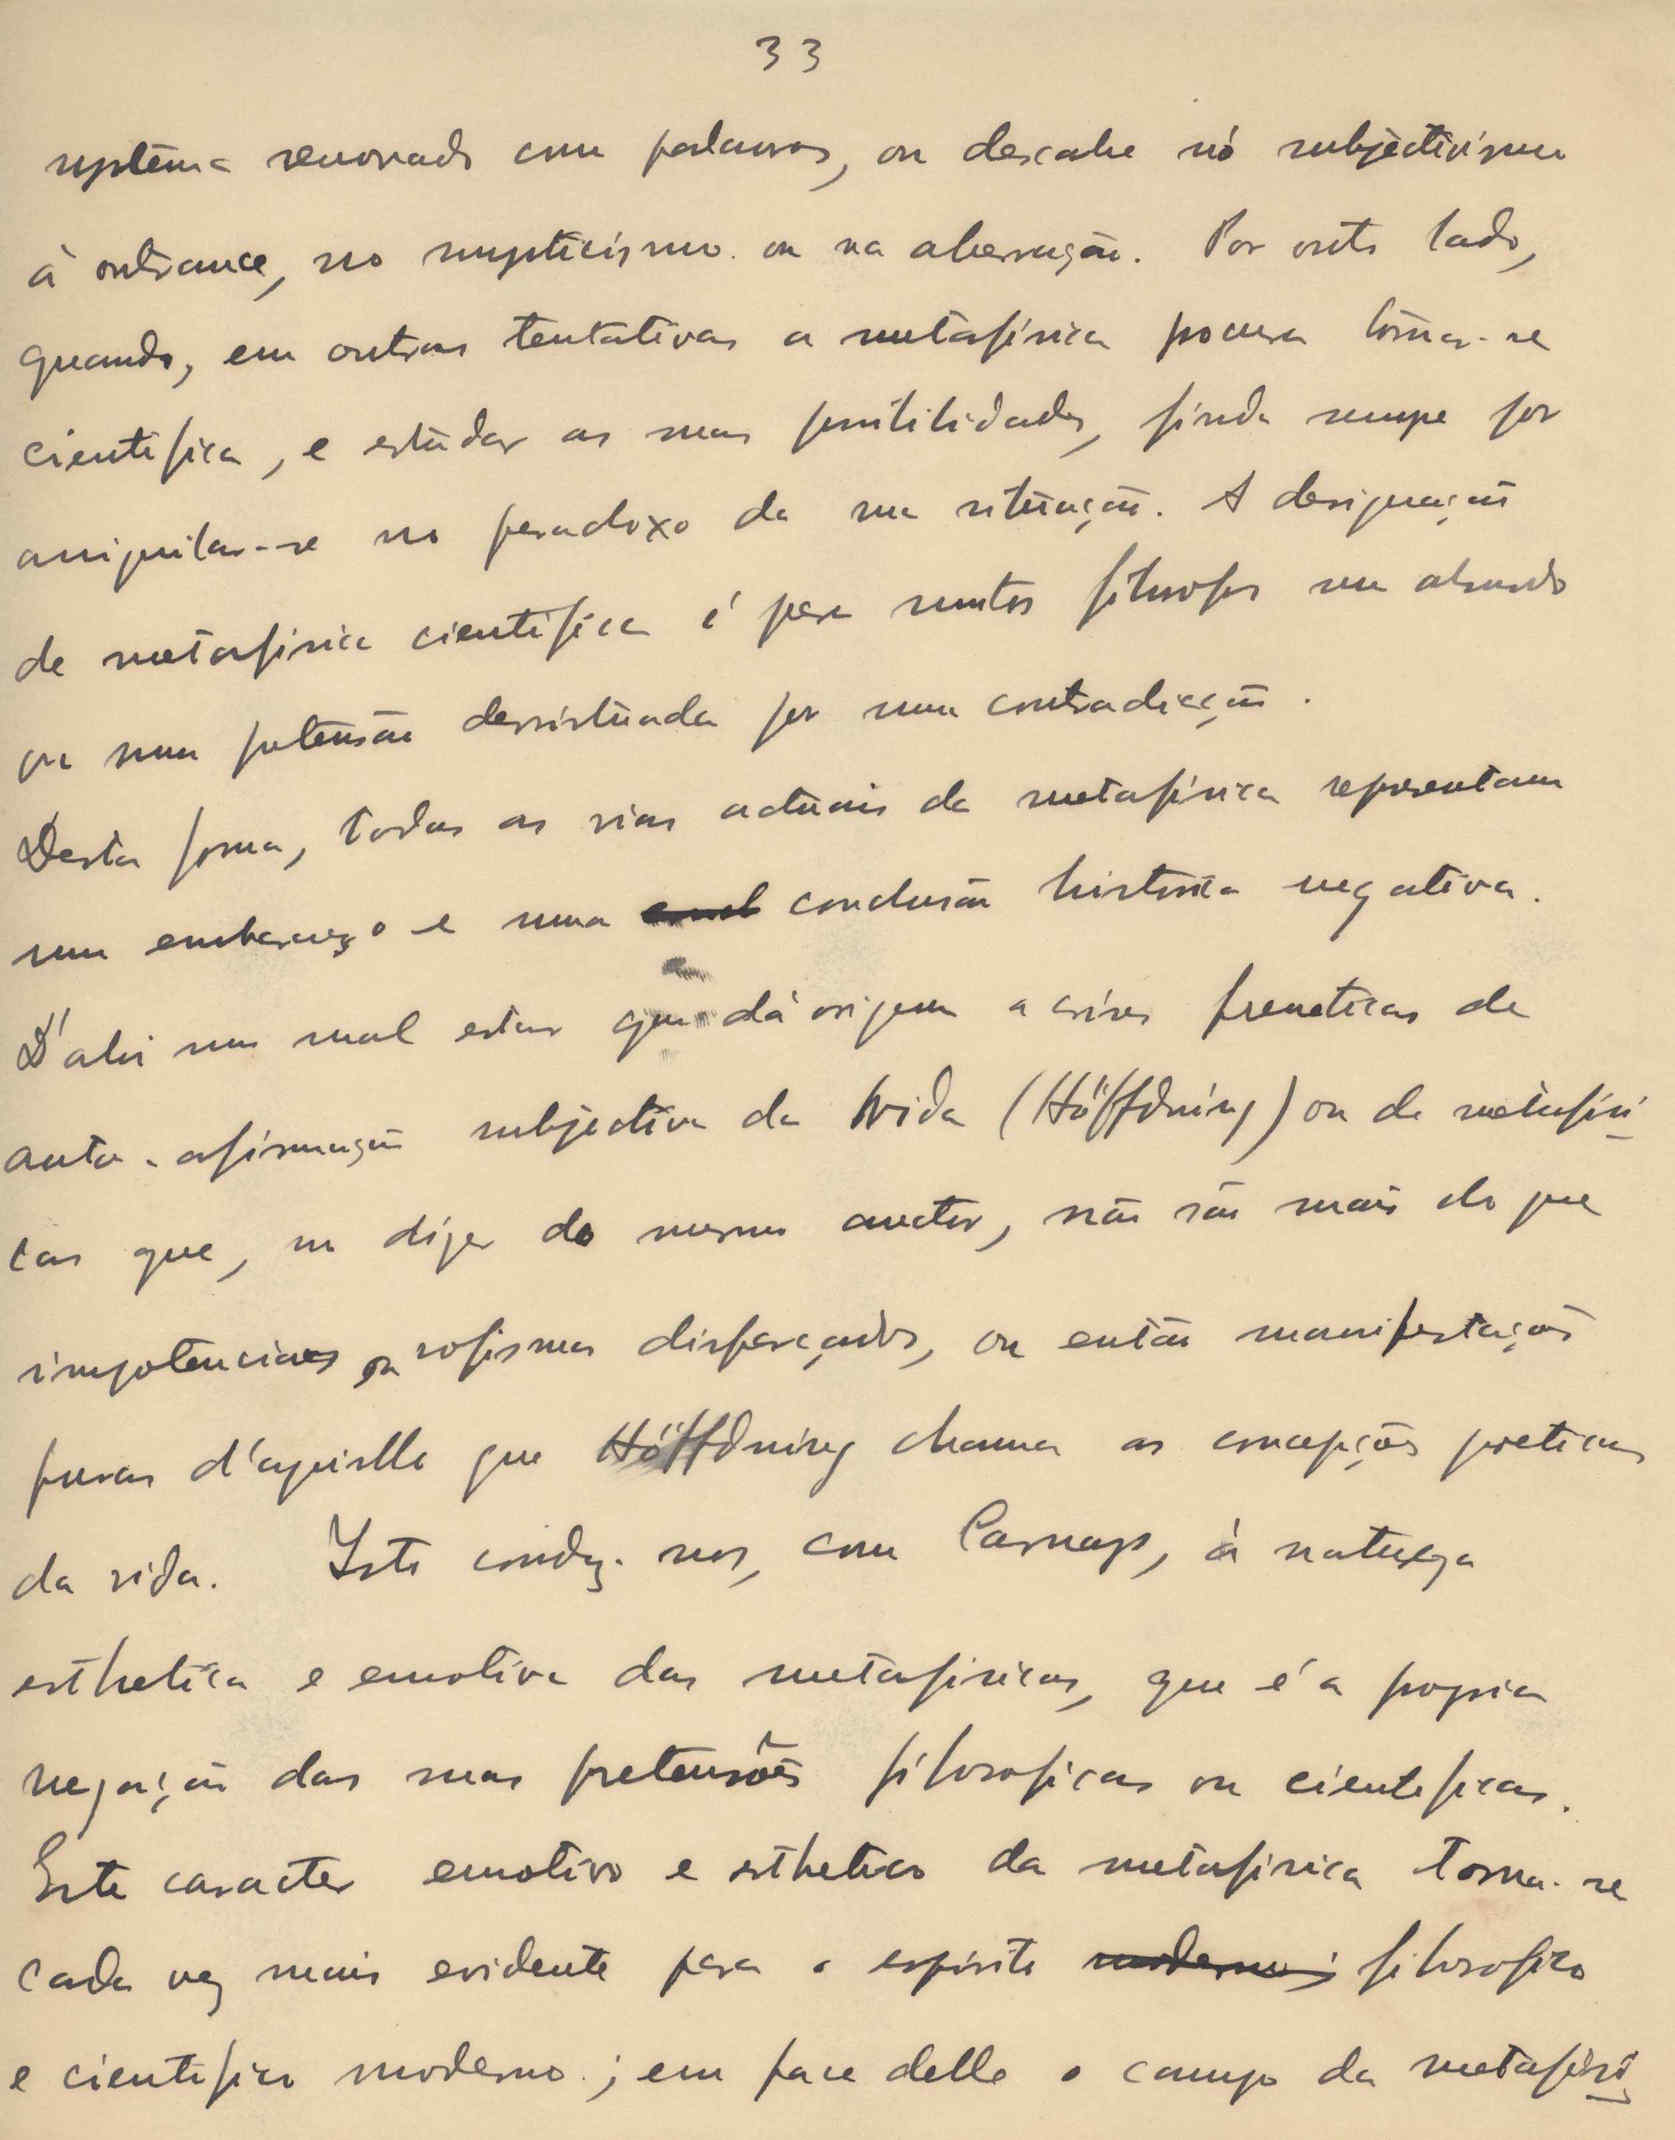 33
systema renovado com palavras, ou descahe no subjectivismo
à outrance, no mysticismo ou na aberração. Por outro lado,
quando, em outras tentativas a metafísica procura tornar-se
cientifica, e estudar as suas possibilidades, finda sempre por
aniquilar-se no paradoxo da sua situação. A designação
de metafísica cientifica é para muitos filosofos um absurdo
ou uma pretensão desvirtuada por uma contradicção.
Desta forma, todas as vias actuais da metafísica representam
um embaraço e uma conclusão historica negativa.
D'ahi um mal estar que dá origem a crises freneticas de
auto-afirmação subjectiva da vida (Höffding) ou de metafísi-
cas que, no dizer do mesmo auctor, não são mais do que
impotencias ou sofismas disfarçados, ou então manifestações
puras d'aquillo que Höffding chama as concepções poeticas
da vida. Isto conduz-nos, com Carnap, à natureza
esthetica e emotiva das metafisicas, que é a propria
negação das suas pretensões filosoficas ou cientificas.
Este caracter emotivo e esthetico da metafísica torna-se
cada vez mais evidente para o espirito moderno; filosofico
e cientifico moderno; em face delle o campo da metafísi-